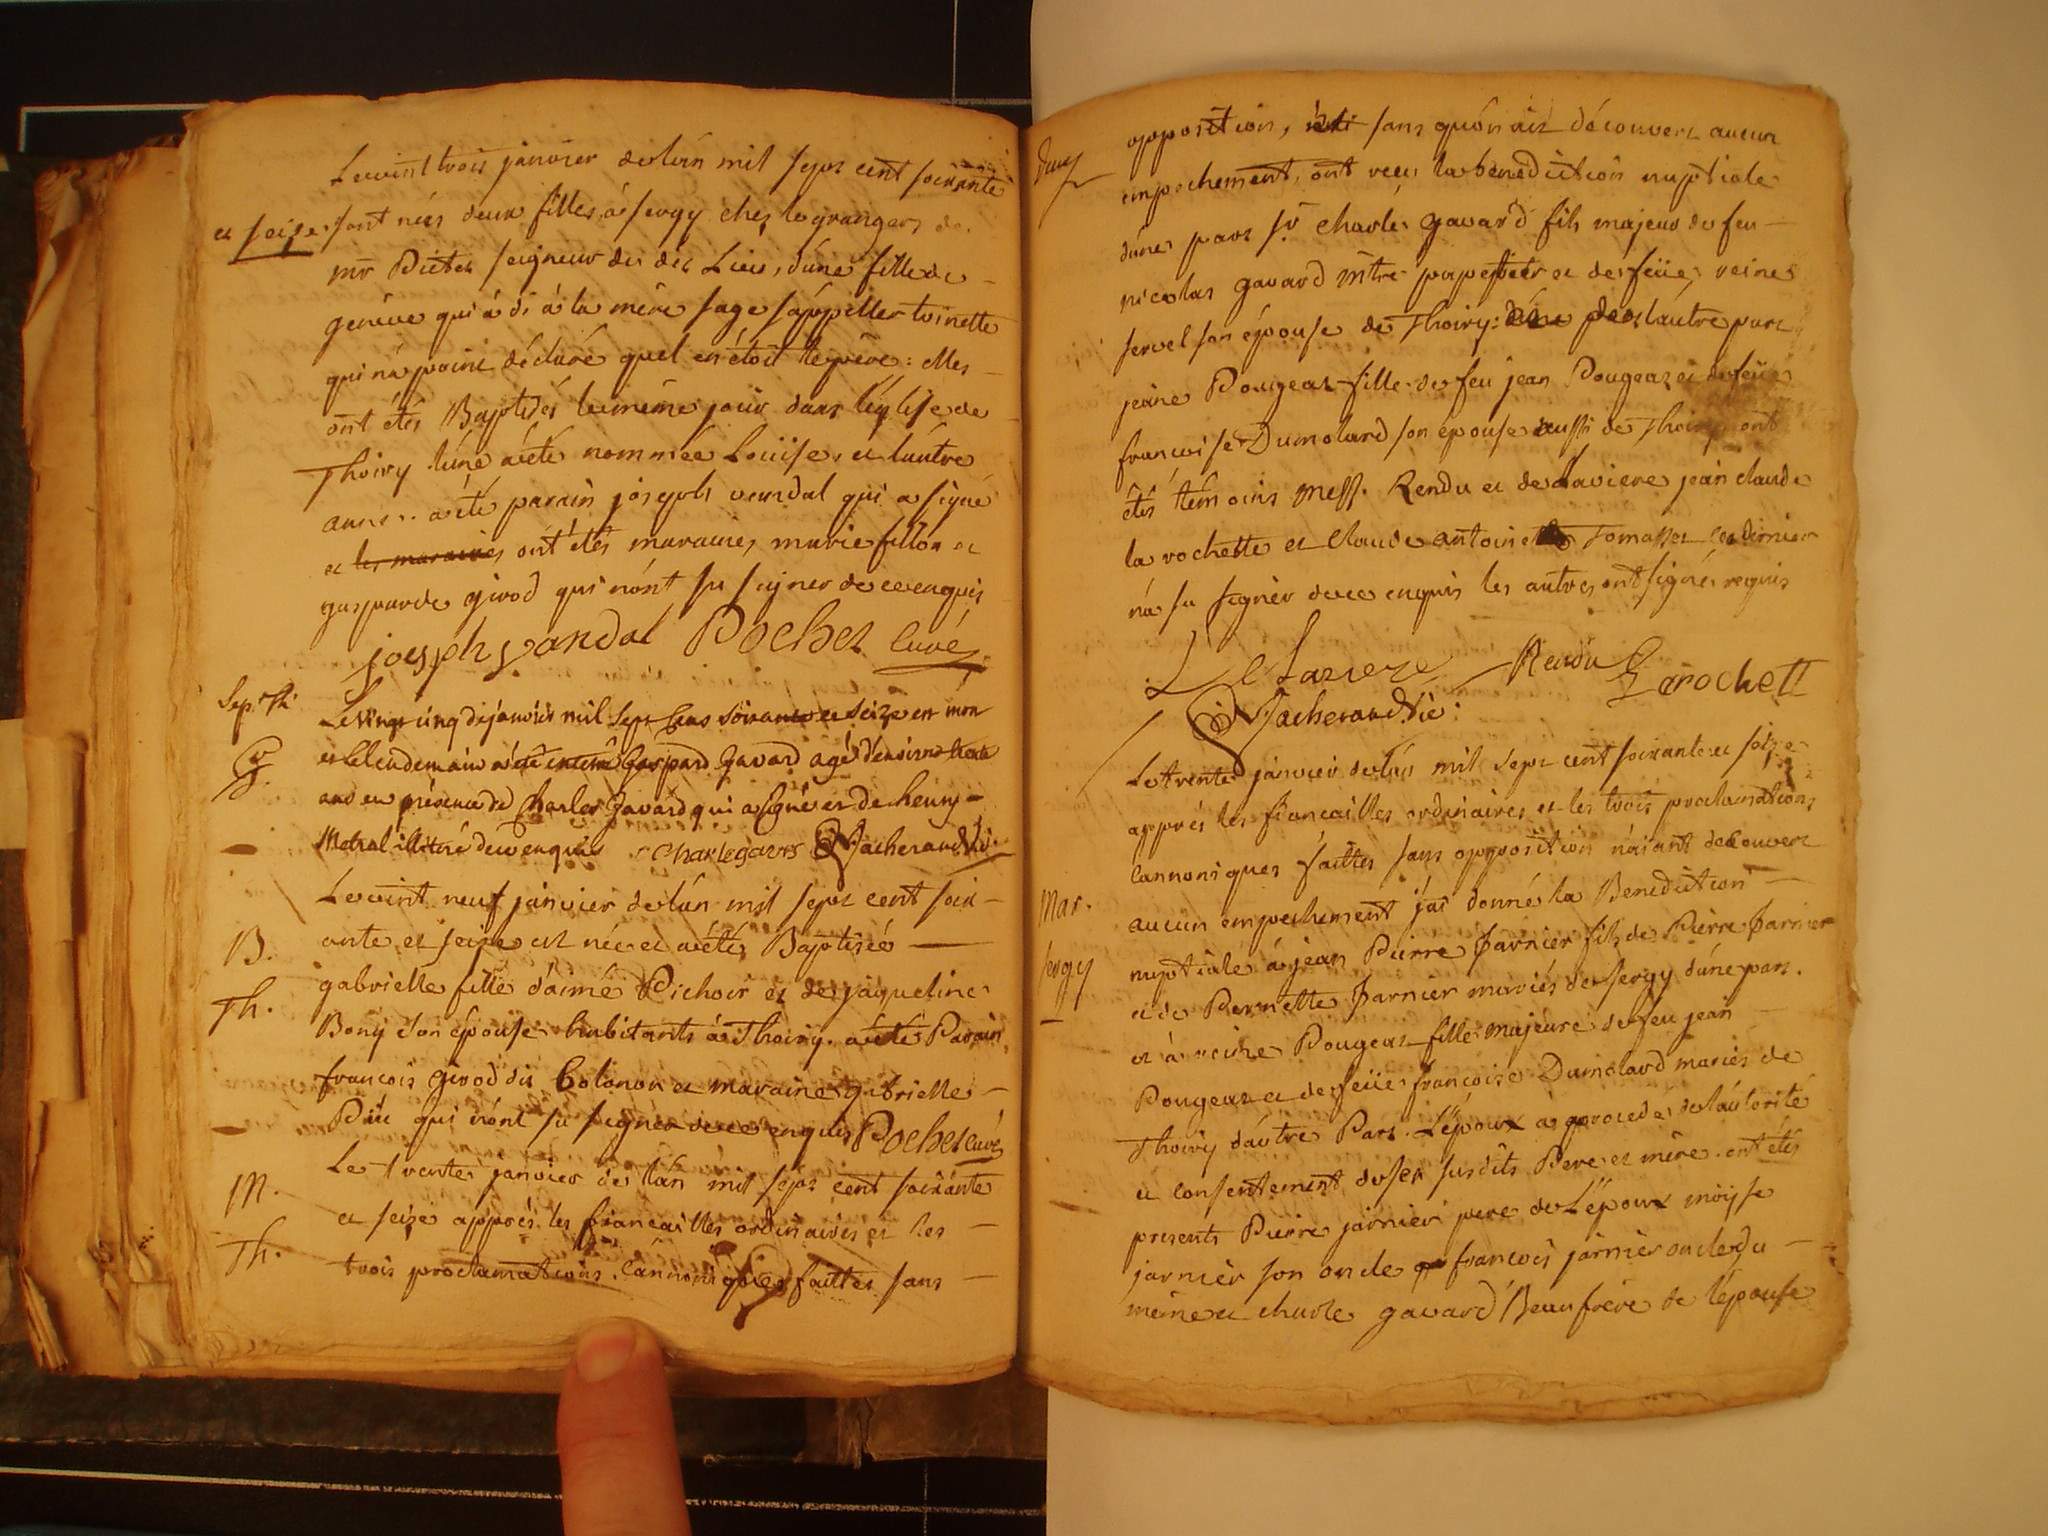 Le vint trois janvier de l'an mil sept cent soixante
et seise sont nées deux filles à sergy chez le granger de
mr Pictet seigneur du dit Lieu, d'une fille de
genève qui a di à la mère sage s'appeller toinette
qui n'a point déclaré quel en étoit le père: elles
ont étés Baptisées le même jour dans l'église de
Thoiry l'une a été nommée Louise, et l'autre
anne. a été parain joseph vendal qui a signé
et les maraines ont étés maraines marie fillon et
gasparde girod qui n'ont su signer de ce enquis
joesph vandal Pochet curé
Sep. Th.
Le vingt cinq de janvier mil sept cens soixante et seize est mort
et le lendemain a été enterré Gaspard Gavard agé d'environ trente
ans en présence de Charles Gavard qui a signé et de henry
Metral illitéré de ce enquis charle gavard Vacherand vic:
B.
Th.
Le vint neuf janvier de l'an mil sept cent soix-
ante et seise est née et a étés Baptisée
gabrielle fille d'aimé Pichoir et de jaqueline
Bony son épouse habitants à Thoiry. a été Parain
francois girod dit Colonon et maraine gabrielle
qui n'ont su signer de ce enquis Pochet curé
M.
Th.
Le trente janvier de l'an mil sept cent soixante
et seise apprés les fiancailles ordinaires et les
trois proclamations cannoniques faittes sans
opposition, sans qu'on ait découvert aucun
empechement, ont reçu la benediction nuptiale
d'une part sr charle gavard fils majeur de feu
nicolas gavard mître papetier et de feüe reine
servel son épouse de Thoiry: de l'autre part
jeane Pougeat fille de feu jean Pougeat et de feüe
francoise Dumolard son épouse aussi de Thoiry ont
étés témoins mess. Rendu et de Laviere jean claude
la rochette et claude antoine Tomasset ce dernier
n'a su signer de ce enquis les autres ont signés requis
De Laviere Rendu Larochett
Vacherand vic:
Mar.
sergy
Le trente janvier de l'an mil sept cent soixante et seize
apprés les fiancailles ordinaires et les trois proclamations
cannoniques faittes sans opposition n'aiant decouvert
aucun empechement j'ai donné la Benediction
nuptiale à jean Pierre Jarnier fils de Pierre Jarnier
et de Pernette Jarnier mariés de sergy d'une part.
et à reine Pougeat fille majeure de feu jean
Pougeat et de feüe françoise Dumolard mariés de
Thoiry d'autre Part. L'époux a procedé de l'autorité
et consentement de ses susdits Pere et mère. ont étés
presents Pierre jarnier pere de L'époux moÿse
jarnier son oncle francois jarnier oncle du
même et charle gavard Beaufrère de l'épouse